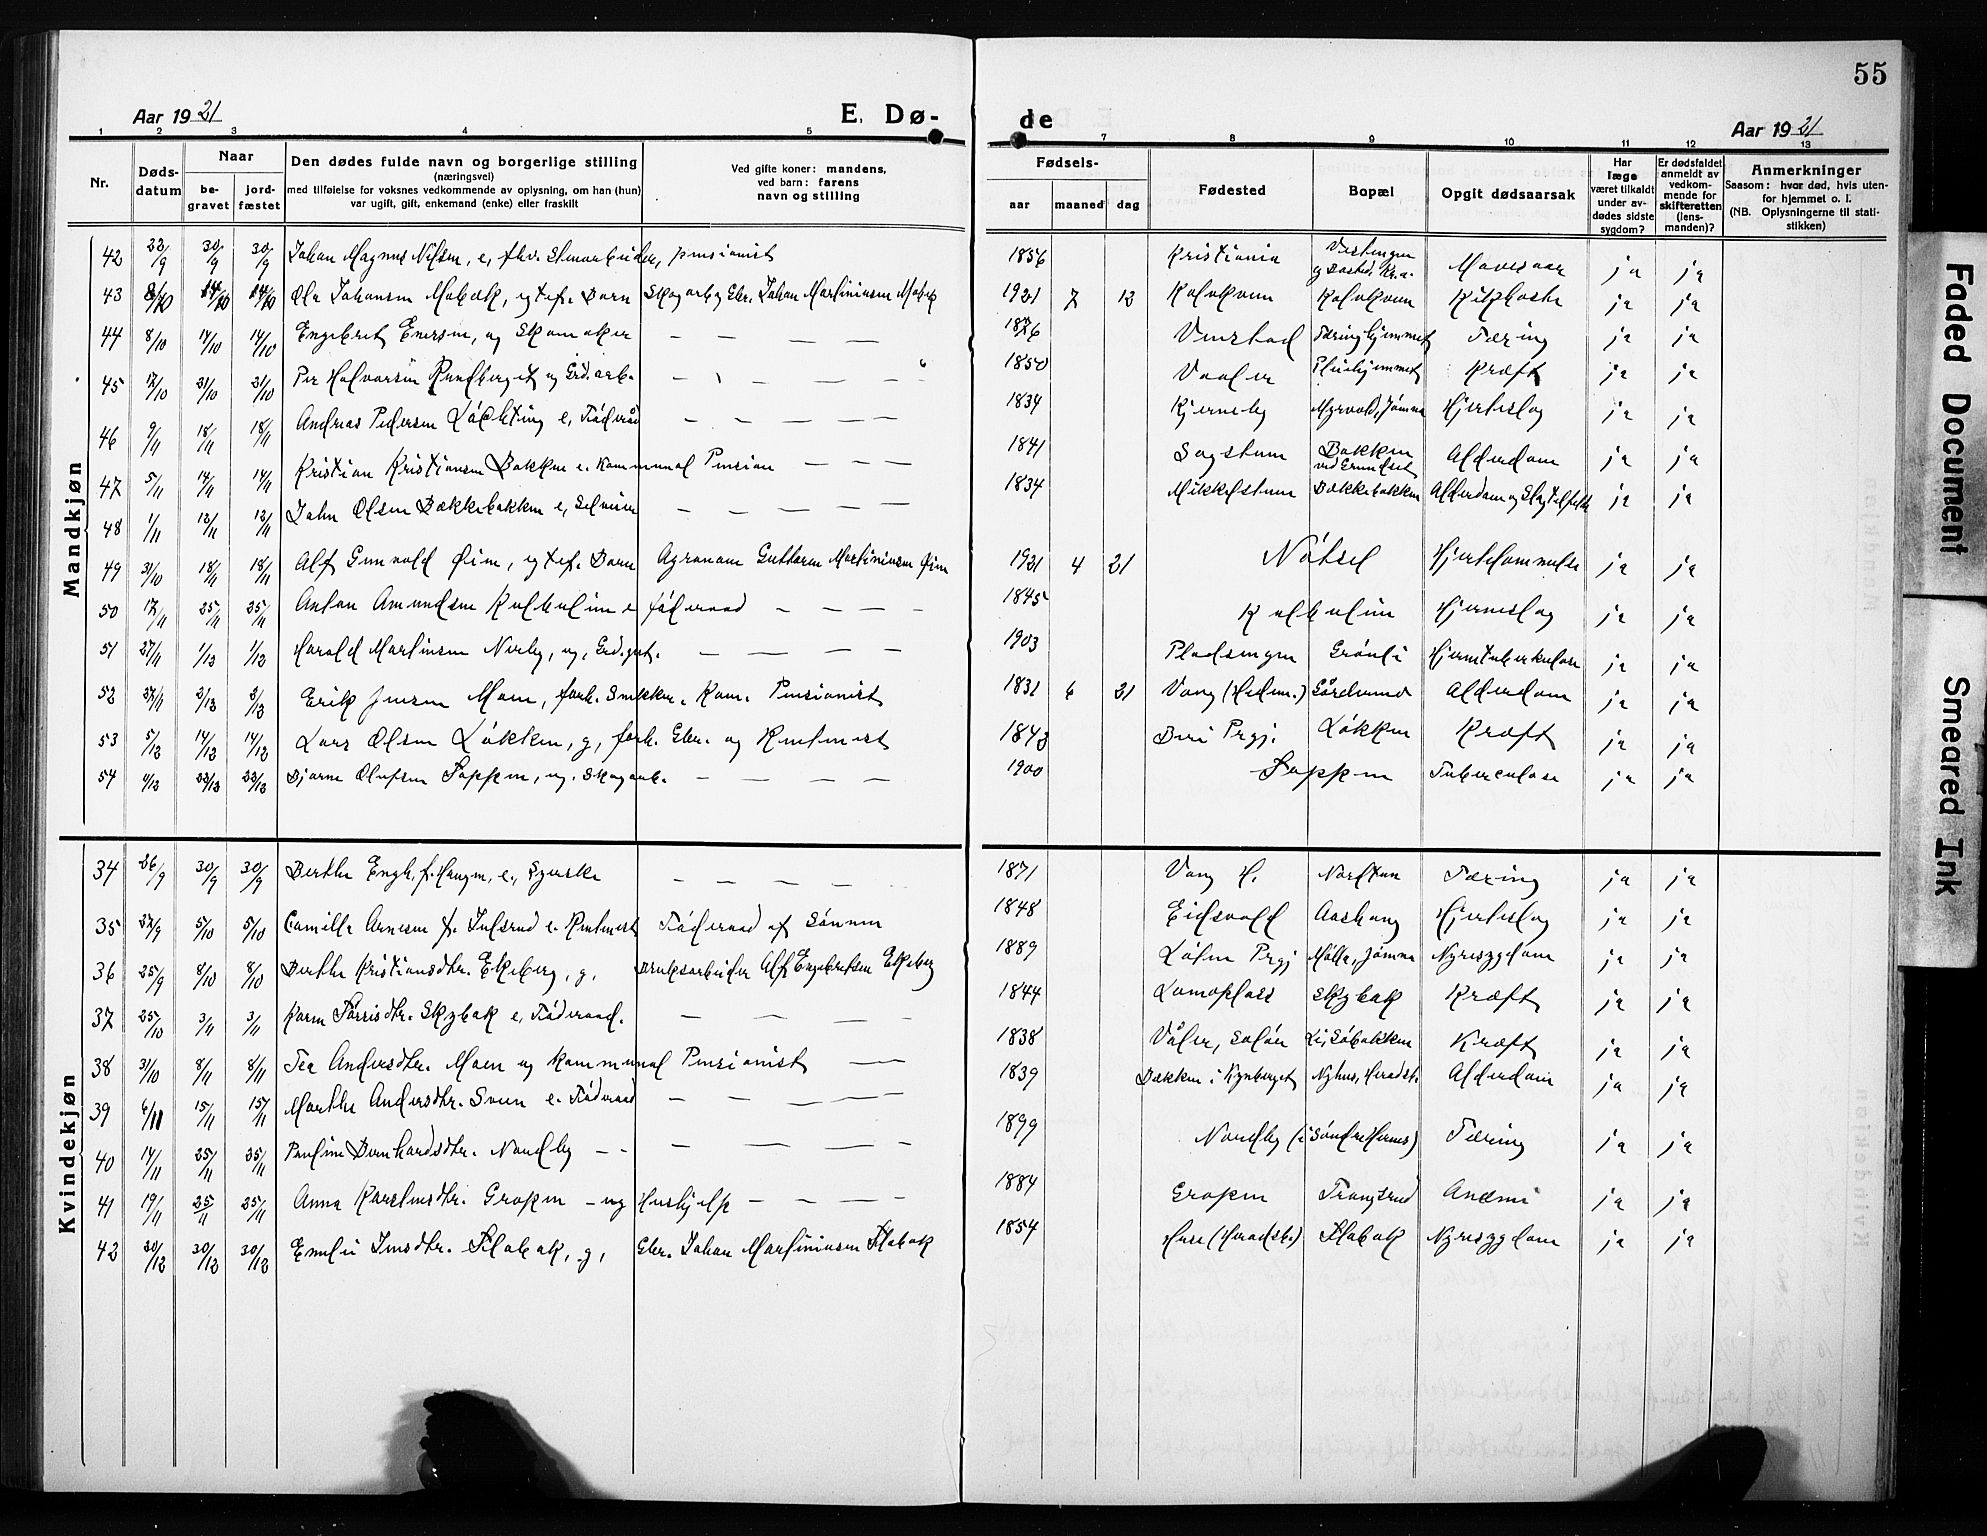 55
Aar 1921 E. Dø- de Aar 1921
1 2 3 4 5 7 8 9 10 11 12 13
Nr. Dødsdatum Naar begravet jordfæstet
Den dødes fulde navn og borgerlige stilling
(næringsvei)
med tilføielse for voksnes vedkommende av oplysning, om han (hun)
var ugift, gift, enkemand (enke) eller fraskilt
Ved gifte koner: mandens,
ved barn: farens
navn og stilling
Fødsels-
aar maaned dag
Fødested
Bopæl
Opgit dødsaarsak
Har
læge
været tilkaldt
under av-
dødes sidste
sygdom?
Er dødsfaldet
anmeldt av
vedkom-
mende for
skifteretten
(lens-
manden)?
Anmerkninger
Saasom: hvor død, hvis uten-
for hjemmet o. l.
(NB. Oplysningerne til stati-
stikken)
Mandkjøn
42 22/9 30/9 30/9 Johan Magnus Nilsen, e, pensionist 1856 Kristiania Mavesaar ja ja
43 14/10 14/10 Ole Johansen egtef. Barn Johan Martiniusen 1921 7 12 Kolvkvern Kolvkvern Kikhoste ja ja
44 8/10 14/10 14/10 Engebret Enersen, ug Skomaker — — — — 1876 Tæringhjemmet Tæring ja ja
45 17/10 21/10 21/10 Per Halvorsen Rundberget ug Grd.arb. — — — — 1850 Vaaler Pleiehjemmet Kræft ja ja
46 9/11 18/11 18/11 Andreas Pedersen e, Føderåd — — — — 1834 Kjerneby Myrvold, Jømna Hjerteslag ja ja
47 5/11 14/11 14/11 Kristian Kristiansen Bakken e. Kommunal Pension — — — 1841 Sagstuen Bakken ved Grundset Alderdom ja ja
48 1/11 12/11 12/11 John Olsen Bækkebakken e, — — — — 1834 Mikkelstuen Bækkebakken Alderdom og Slagtilfælde ja ja
49 31/10 18/11 18/11 Alf Gunvald Øien, egtef. Barn Agronom Guttorm Martiniusen Øien 1921 4 21 ja ja
50 17/11 25/11 25/11 Anton Amundsen e føderaad — — — — 1845 Hjerneslag ja ja
51 27/11 1/12 1/12 Harald Martinsen Nerby, ug, Grd.gut. — — — — 1903 Pladsengen Grønli Hjernetuberkulose ja ja
52 27/11 2/12 2/12 Erik Jensen Moen, forh. Snekker. Kom. Pensionist 1831 6 21 Vang (Hedm.) Alderdom ja ja
53 5/12 14/12 14/12 Lars Olsen Løkken, g, forh. Gbr. og Rentenist 1843 Biri Prgj. Løkken Kræft ja ja
54 4/12 22/12 22/12 Bjarne Olufsen Soppen, ug. Skogarb. — — — — 1900 Soppen Tuberculose ja ja
Kvindekjøn
34 26/9 30/9 30/9 Berthe Engh, f. Haugen, e, — — — — 1871 Vang H. Nordtun Tæring ja ja
35 27/9 5/10 5/10 Camilla Arnesen f. Julsrud e. Rentenist Føderaad af Sønnen 1848 Eidsvold Aashaug Hjerteslag ja ja
36 25/9 8/10 8/10 Berthe Kristiansdtr. Ekeberg, g, Bruksarbeider Alf Engebretsen Ekeberg 1889 Løten Prgj Mølla, Jømna Nyresygdom ja ja
37 25/10 3/11 3/11 Karen Skybak e, Føderaad. — — — 1844 Lomoplass Skybak Kræft ja ja
38 31/10 8/11 8/11 Tea Andersdtr. Moen ug kommunal Pensionist — 1838 Våler, Solør Li, Søbakken Kræft ja ja
39 6/11 15/11 15/11 Marthe Andersdtr. Sveen e. Føderaad — — — — 1839 Bakken i Kynberget Nyhus, Heradsb. Alderdom ja ja
40 14/11 25/11 25/11 Pauline Bernhardsdtr. Nordby — — — — — — 1899 Nordby (i Søndre Hernes) Tæring ja ja
41 19/11 25/11 25/11 Anna Karelinsdtr. Gropen — ug Hushjelp — — — — 1884 Gropen Trangsrud Anæmi ja ja
42 20/12 30/12 30/12 Emelie Jensdtr. Flobak, g, Gbr. Johan Martiniusen Flobak 1854 (Heradsb.) Flobak Nyresygdom ja ja
Faded Document
Smeared Ink